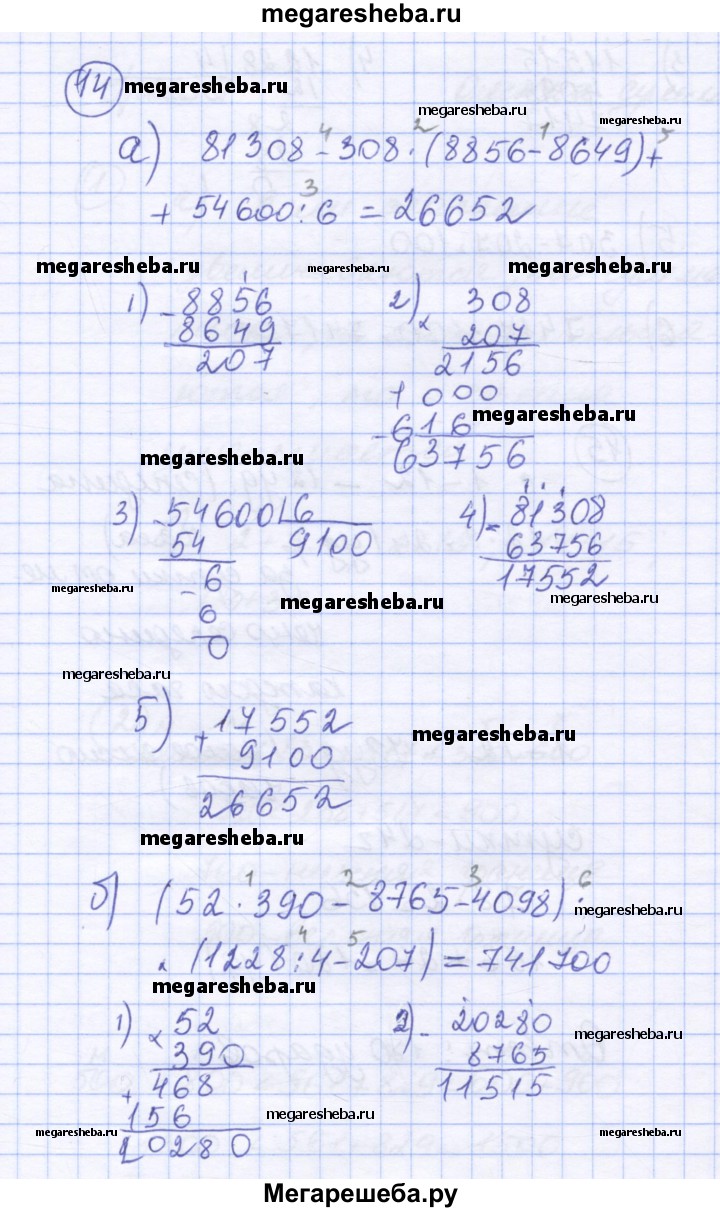 megaresheba.ru
14 megaresheba.ru
megaresheba.ru megaresheba.ru
а) 81308 - 308 · (8856 - 8649) +
4 2 1 5
+ 54600 : 6 = 26652
3
megaresheba.ru megaresheba.ru megaresheba.ru
1) - 8856
8649
207
2) × 308
207
2156
1000
616
63756
megaresheba.ru
megaresheba.ru
3) - 54600 6
54 9100
- 6
6
0
4) - 81308
63756
17552
megaresheba.ru megaresheba.ru megaresheba.ru
megaresheba.ru
5) + 17552
9100
26652
megaresheba.ru
megaresheba.ru
б) (52 · 390 - 8765 - 4098) ·
1 2 3 6
megaresheba.ru
× (1228 : 4 - 207) = 741700
4 5
megaresheba.ru
1) × 52
390
+ 468
156
20280
2) - 20280
8765
11515
megaresheba.ru
megaresheba.ru
megaresheba.ru megaresheba.ru
Мегарешеба.ру